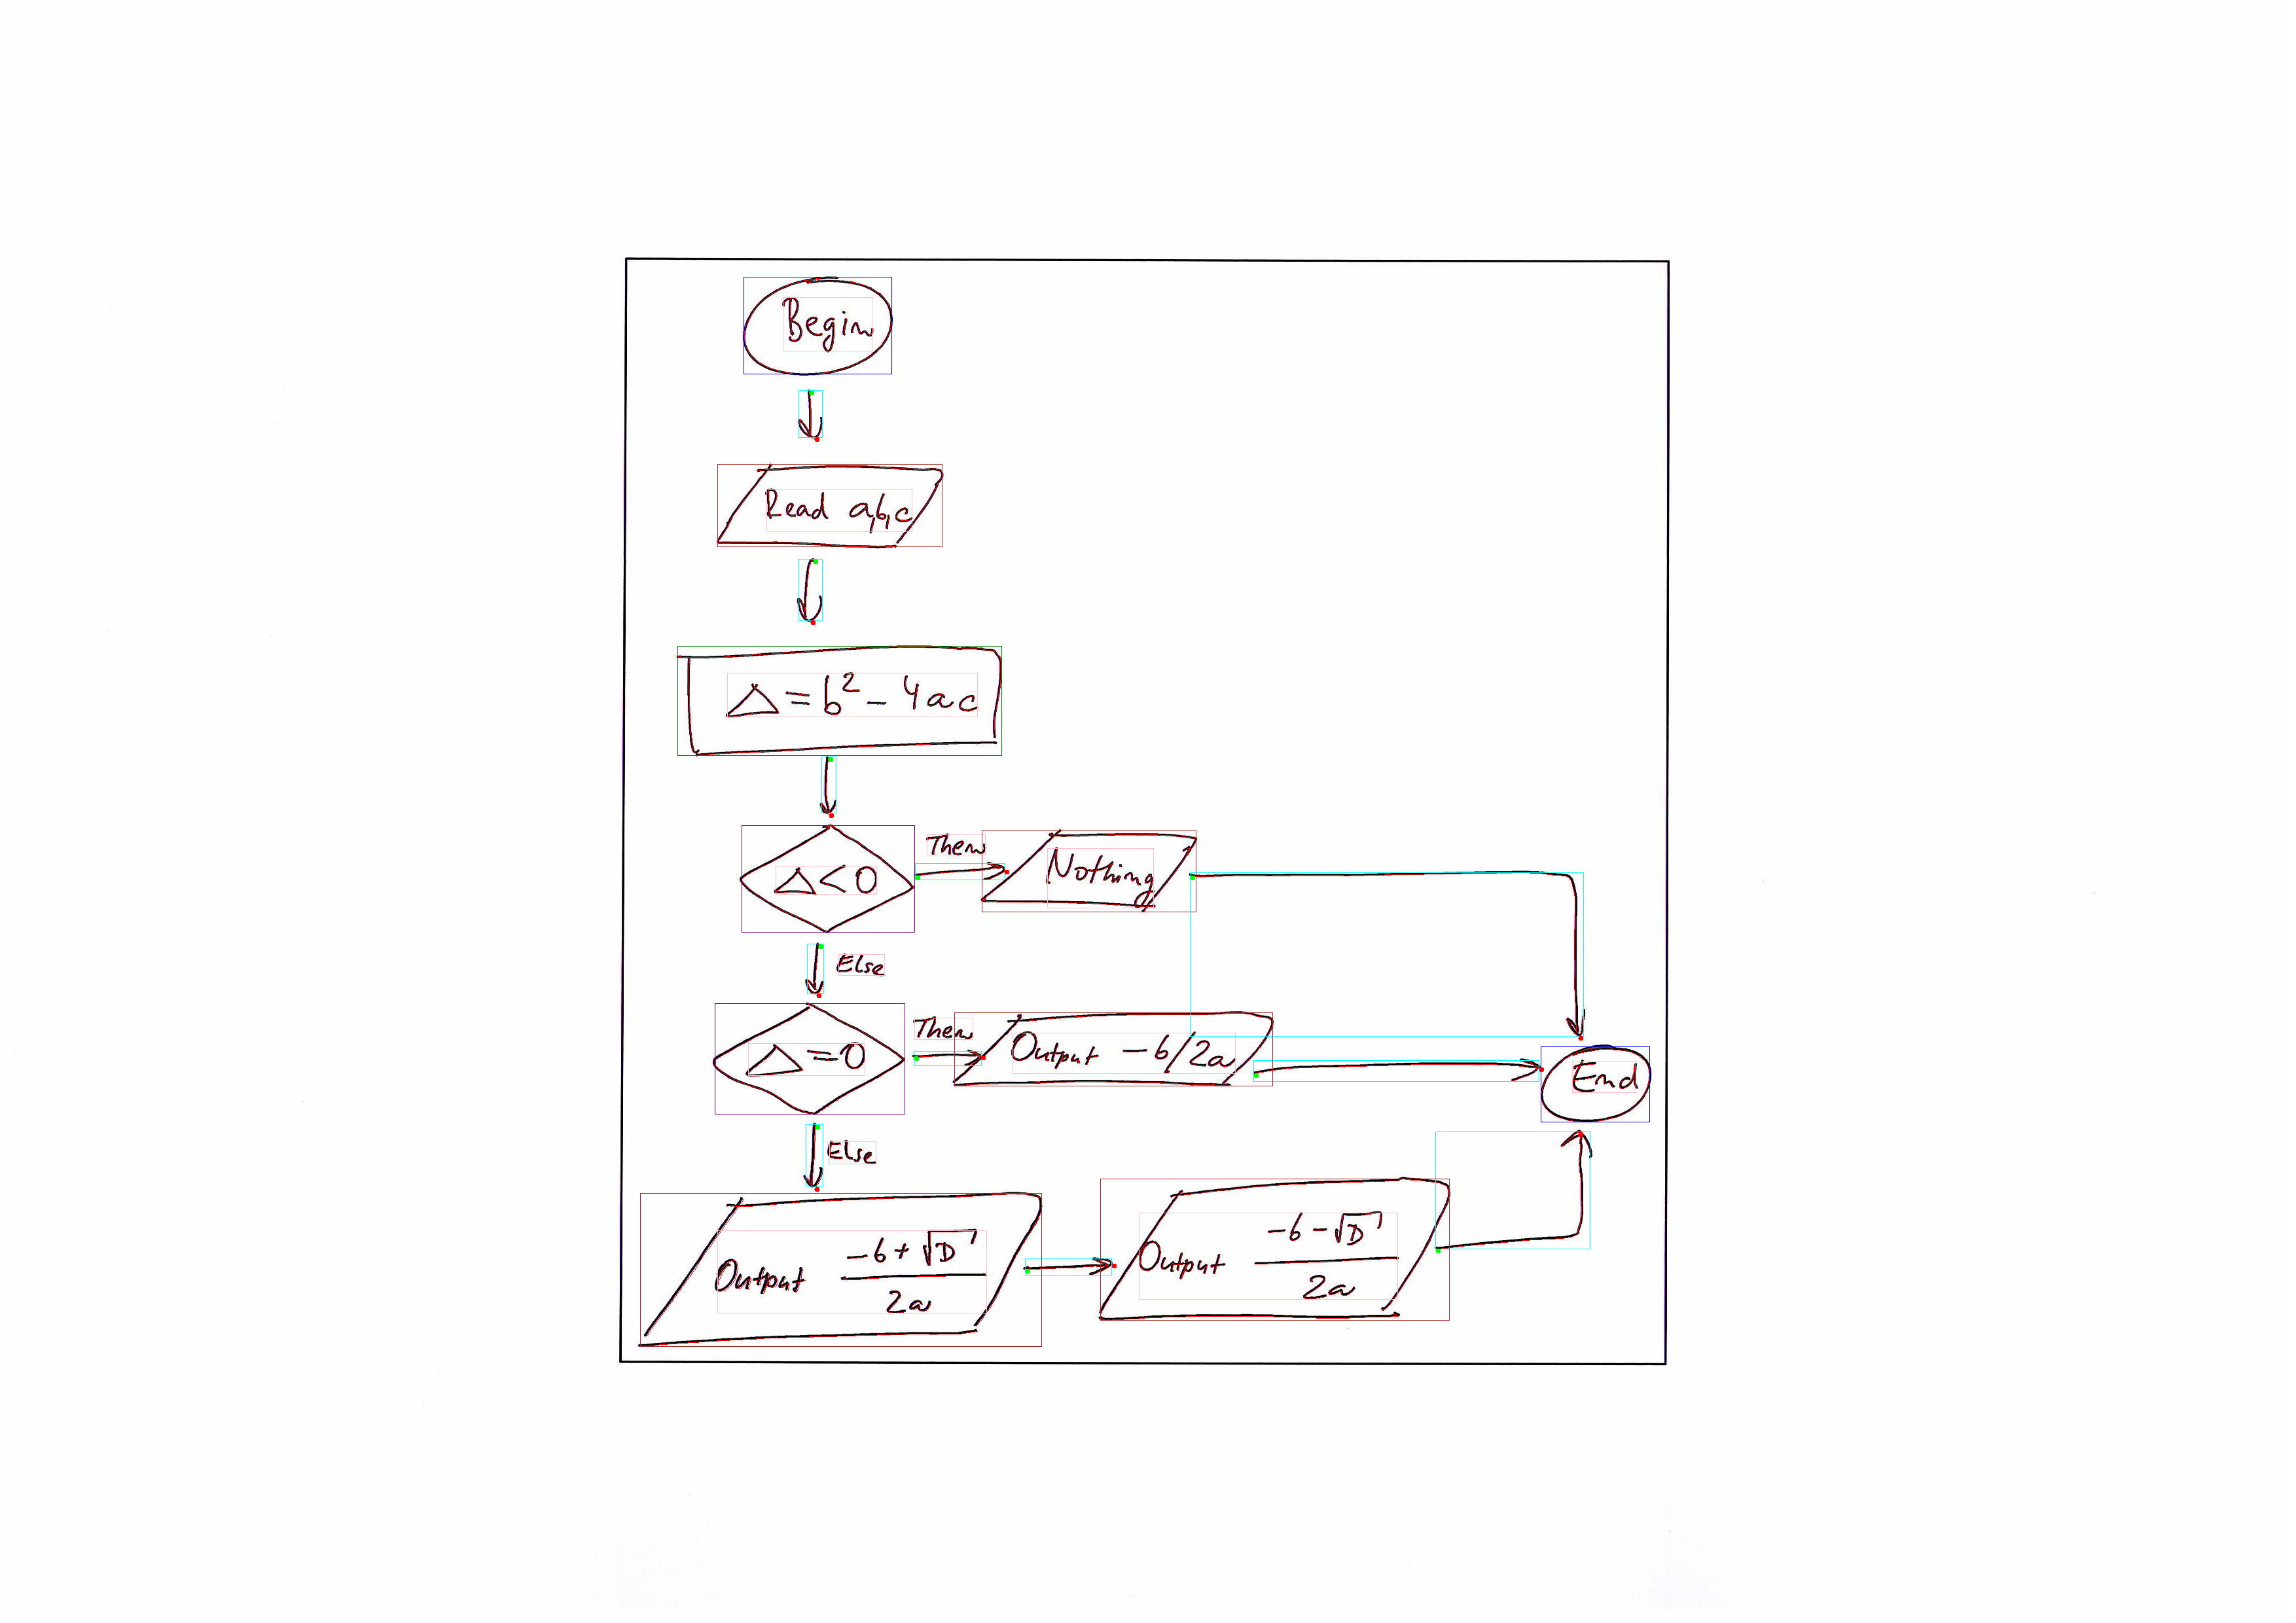 Begin
Read a,b,c
Δ = b² - 4ac
Δ < 0
Then
Nothing
Else
Δ = 0
Then
Output -b/2a
End
Else
Output (-b + √D) / 2a
Output (-b - √D) / 2a